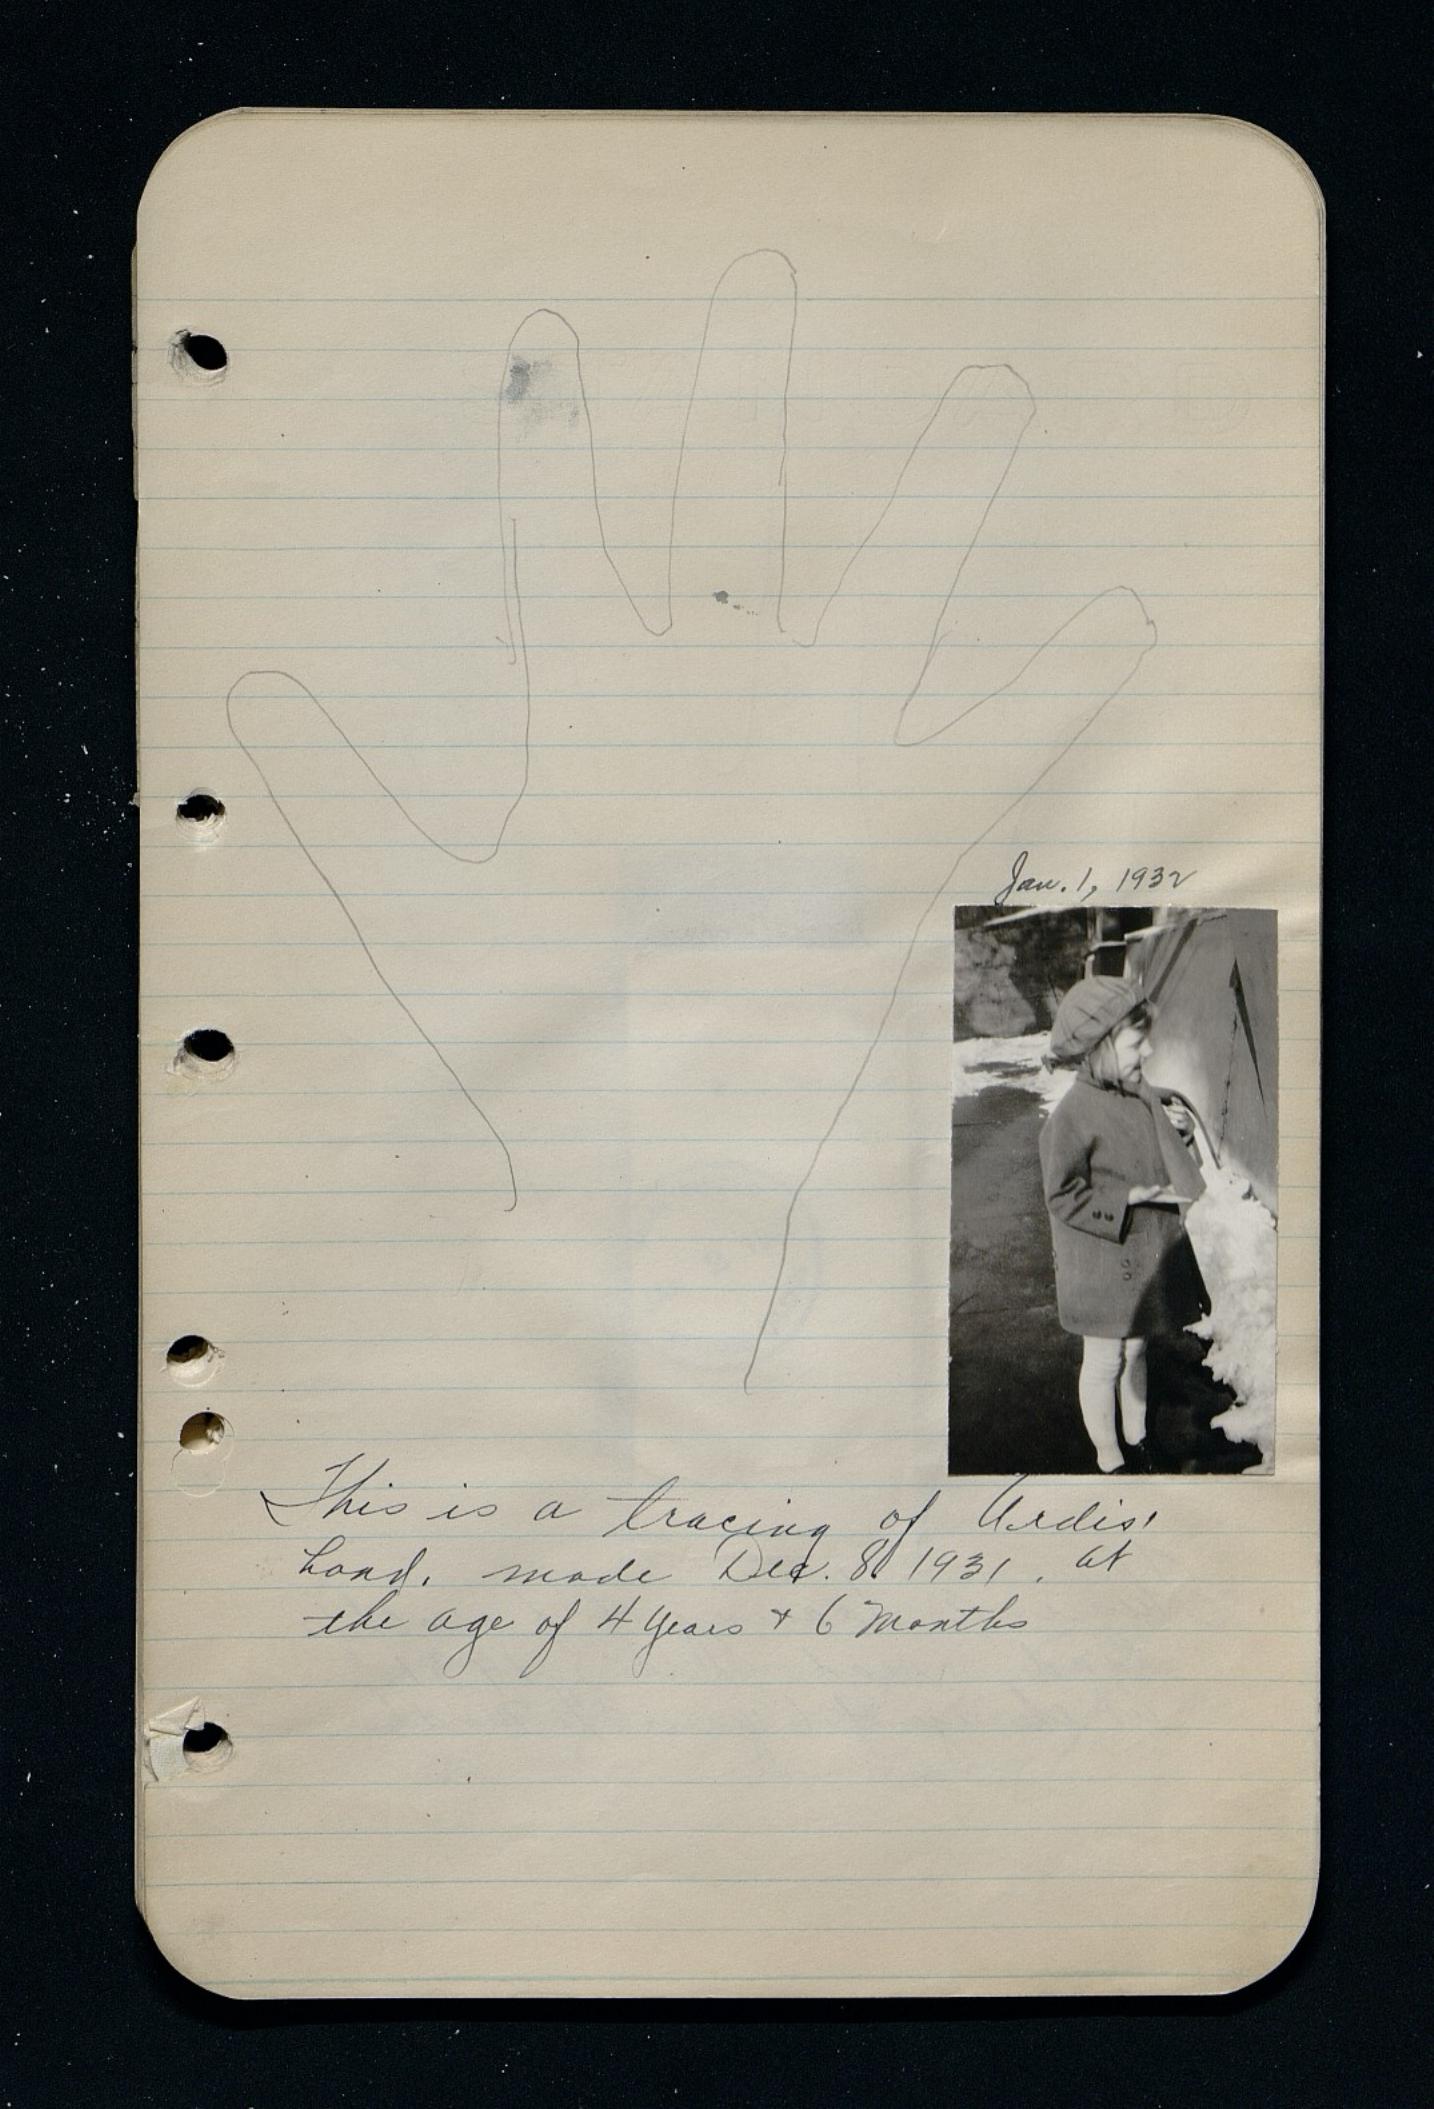 Jan. 1, 1932
This is a tracing of Ardis'
hand. made Dec. 8. 1931. at
the age of 4 years & 6 Months